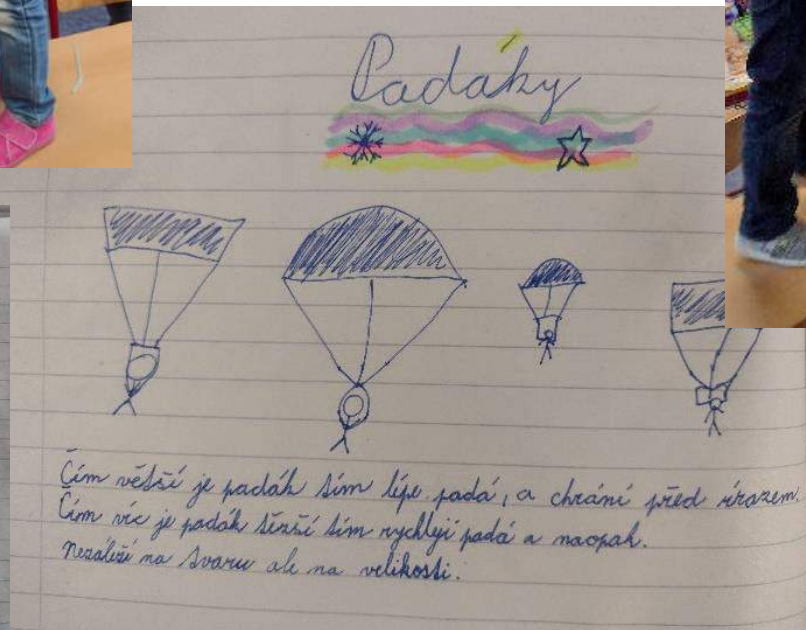 Padáky
Čím větší je padák tím lépe padá, a chrání před úrazem.
Čím víc je padák těžší tím rychleji padá a naopak.
nezáleží na tvaru ale na velikosti.